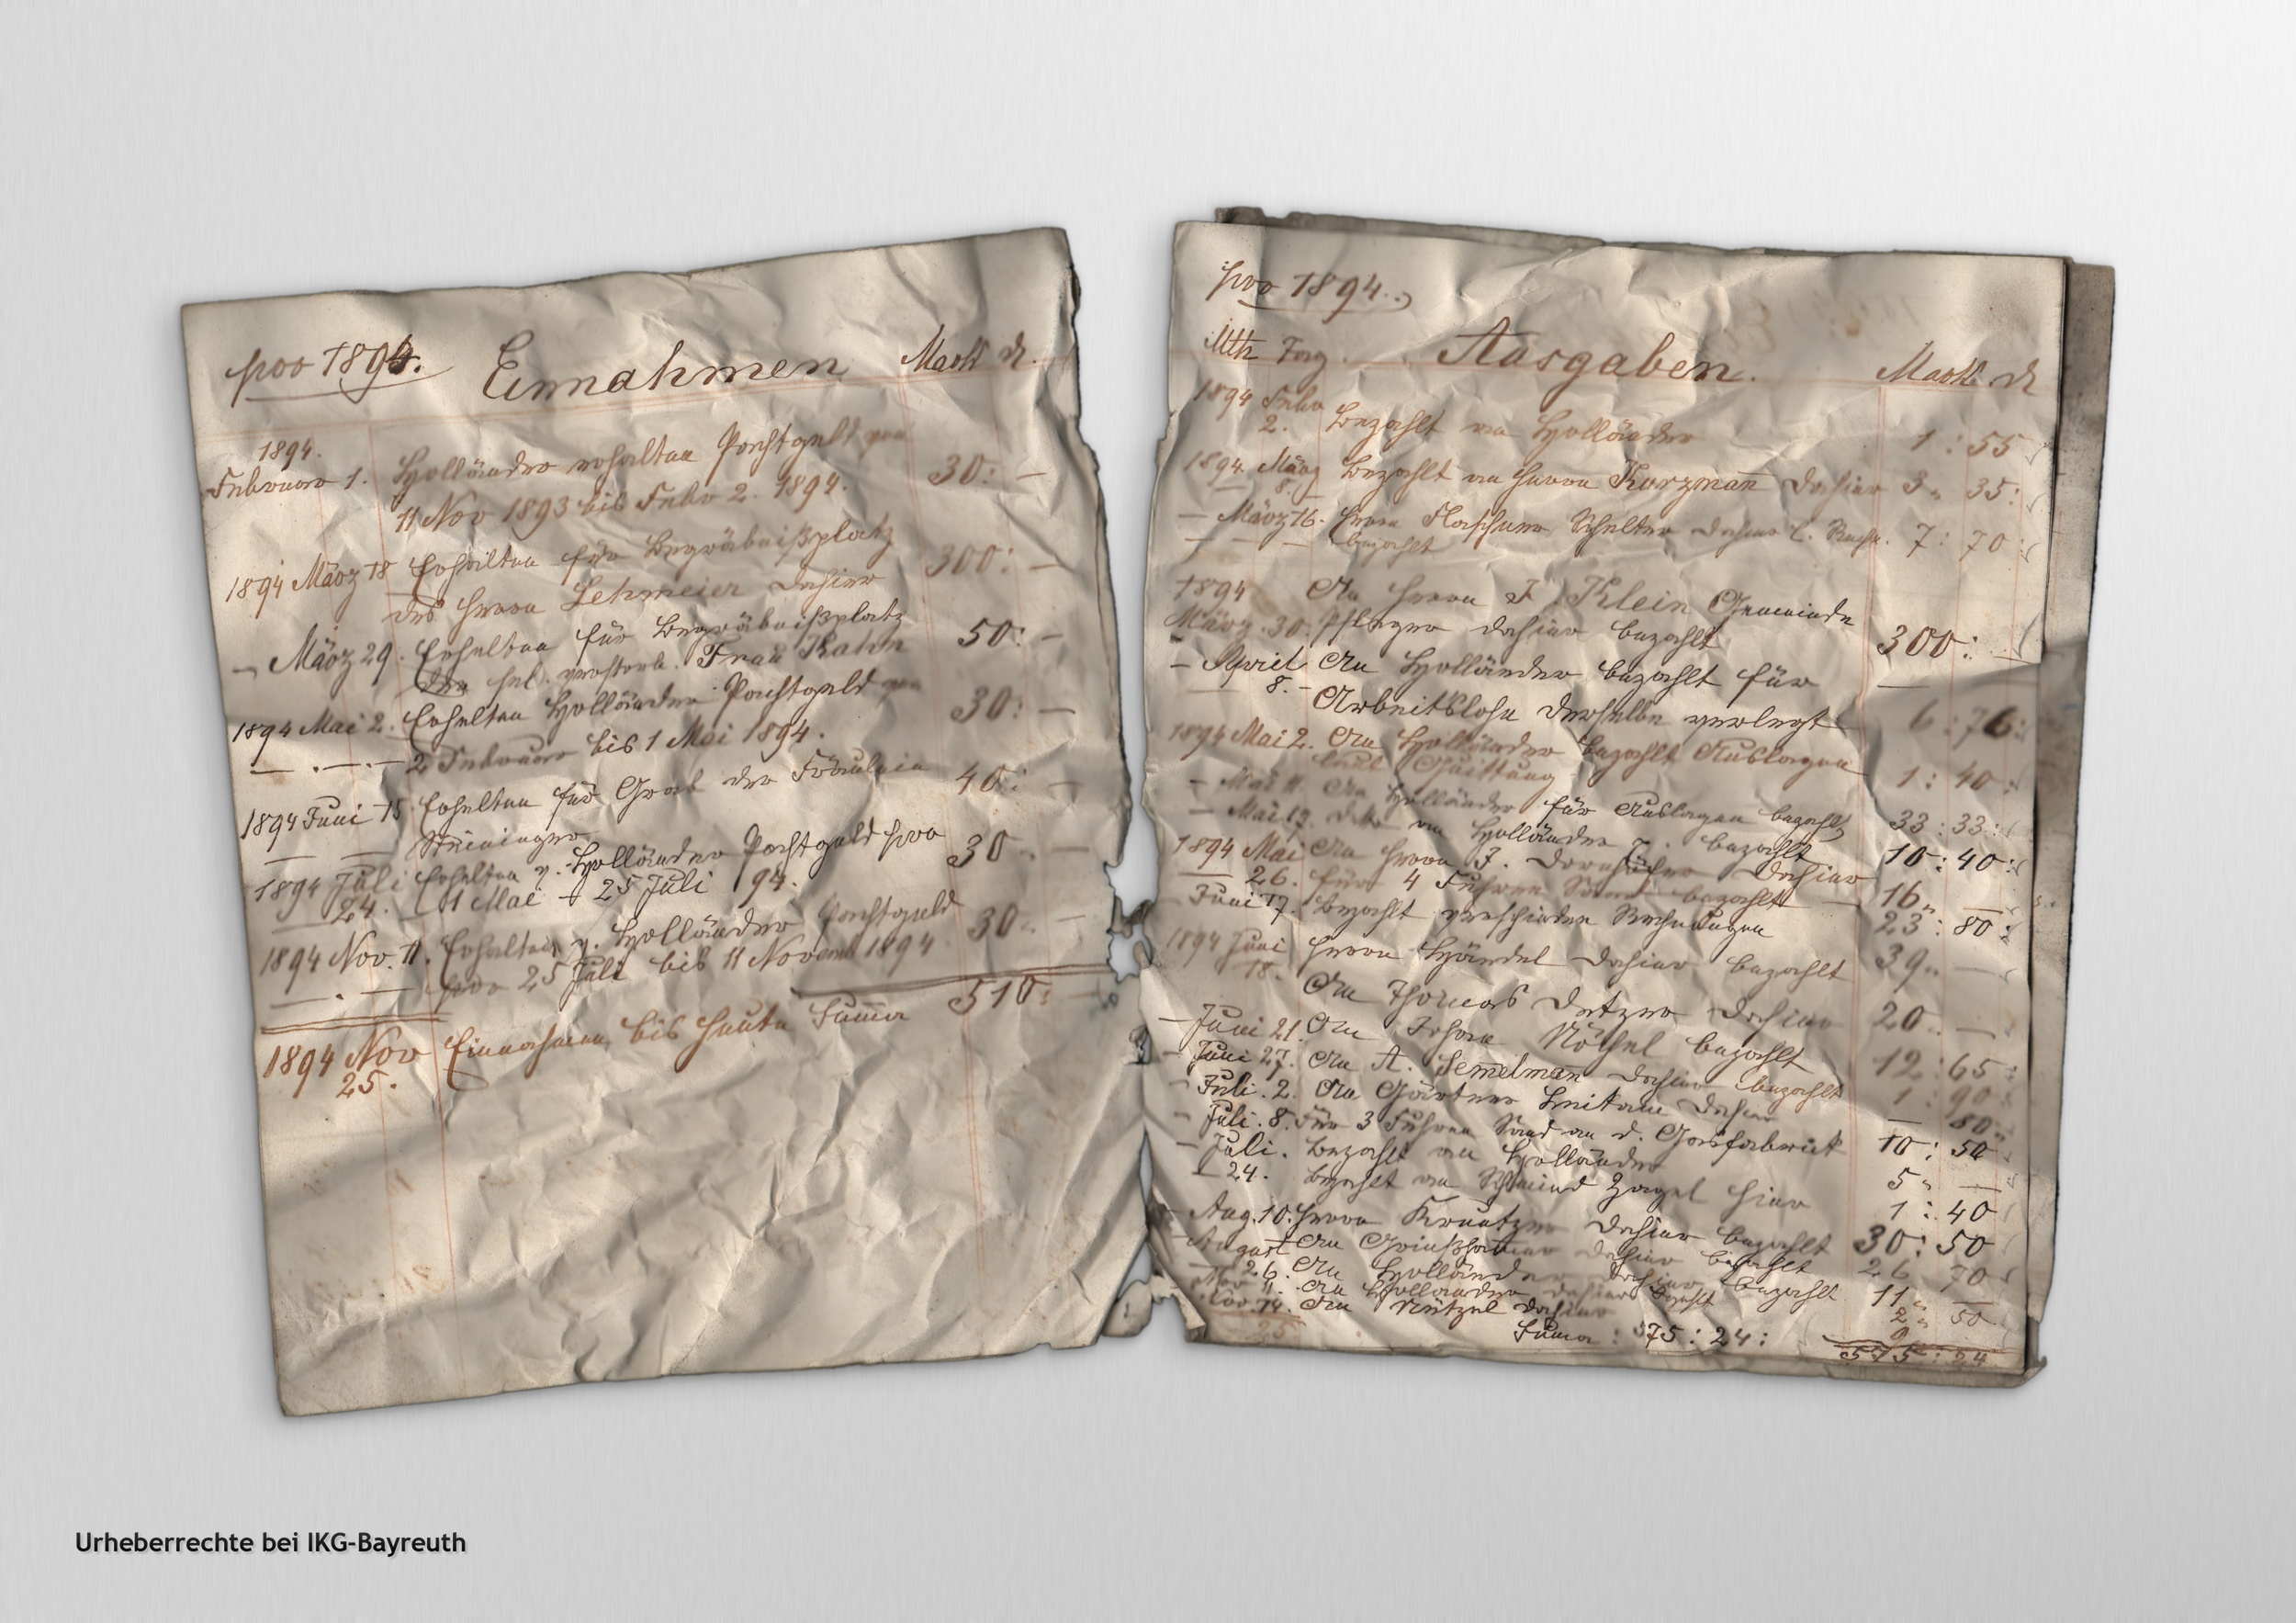 pro 1894. Einnahmen Mark ₰.
1894.
Februar 1. Holländer erhalten Pachtgeld von 30: —
11 Nov 1893 bis Febr 2. 1894.
1894 März 18 Erhalten für Begräbnißplatz 300: —
des Herrn Lehmeier dahier
— März 29. Erhalten für Begräbnißplatz 50: —
der sel. verstorb. Frau Kahn
1894 Mai 2. Erhalten Holländer Pachtgeld von 30: —
— . — . — 2 Februar bis 1 Mai 1894.
1894 Juni 15 Erhalten für Grab der Fräulein 40: —
— — Steininger
1894 Juli Erhalten v. Holländer Pachtgeld pro 30 —
24. 1 Mai – 25 Juli 94.
1894 Nov. 11. Erhalten v. Holländer Pachtgeld 30 —
— . — pro 25 Juli bis 11 Novemb 1894
1894 Nov Einnahmen bis heute Summa 510: —
25.
pro 1894.
Mth Tag. Ausgaben. Mark ₰
1894 Febr
2. Bezahlt an Holländer 1 : 55
1894. März Bezahlt an Herrn Kurzman̄ dahier 3 „ 35:
8.
— März 16. Herrn Flaschner Schelter dahier l. Rechn. 7 : 70
— — — bezahlt
1894 An Herrn J. Klein Gemeinde
März 30. Pfleger dahier bezahlt 300: —
— April An Holländer bezahlt für —
8. – Arbeitslohn derselbe verlegt 6 : 76:
1894 Mai 2. An Holländer bezahlt Auslagen
laut Quittung 1 : 40
– Mai 11. An Holländer für Auslagen bezahlt 33 : 33
– Mai 19. an Holländer bezahlt 10 : 40
1894 Mai An Herrn J. dahier
26. für 4 Fuhren Sand bezahlt 16 „ —
– Juni 17. Bezahlt verschiedene Rechnungen 23 : 80
1894 Juni Herrn Händel dahier bezahlt 39 „ —
18.
An Thomas Detzer dahier 20 —
– Juni 21. An Johann Nöthel bezahlt 12 : 65
– Juni 27. An A. Sem̄elman̄ dahier bezahlt 1 : 90
– Juli. 2. An Gärtner dahier — 80
– Juli. 8. Für 3 Fuhren Sand an d. Gasfabrick 10 : 50
– Juli. Bezahlt an Holländer 5 „ —
24. Bezahlt an Schmied Zagel hier 1 : 40
– Aug. 10. Herrn Kreutzer dahier bezahlt 30 : 50
– August An dahier bezahlt 26 70
26. An Holländer dahier bezahlt 11 „ —
Nov 11. An Holländer dahier bezahlt 2 „ 50
Nov. 14. An Nützel dahier 9
25 Summa : 575 : 24 :
575 : 24
Urheberrechte bei IKG-Bayreuth